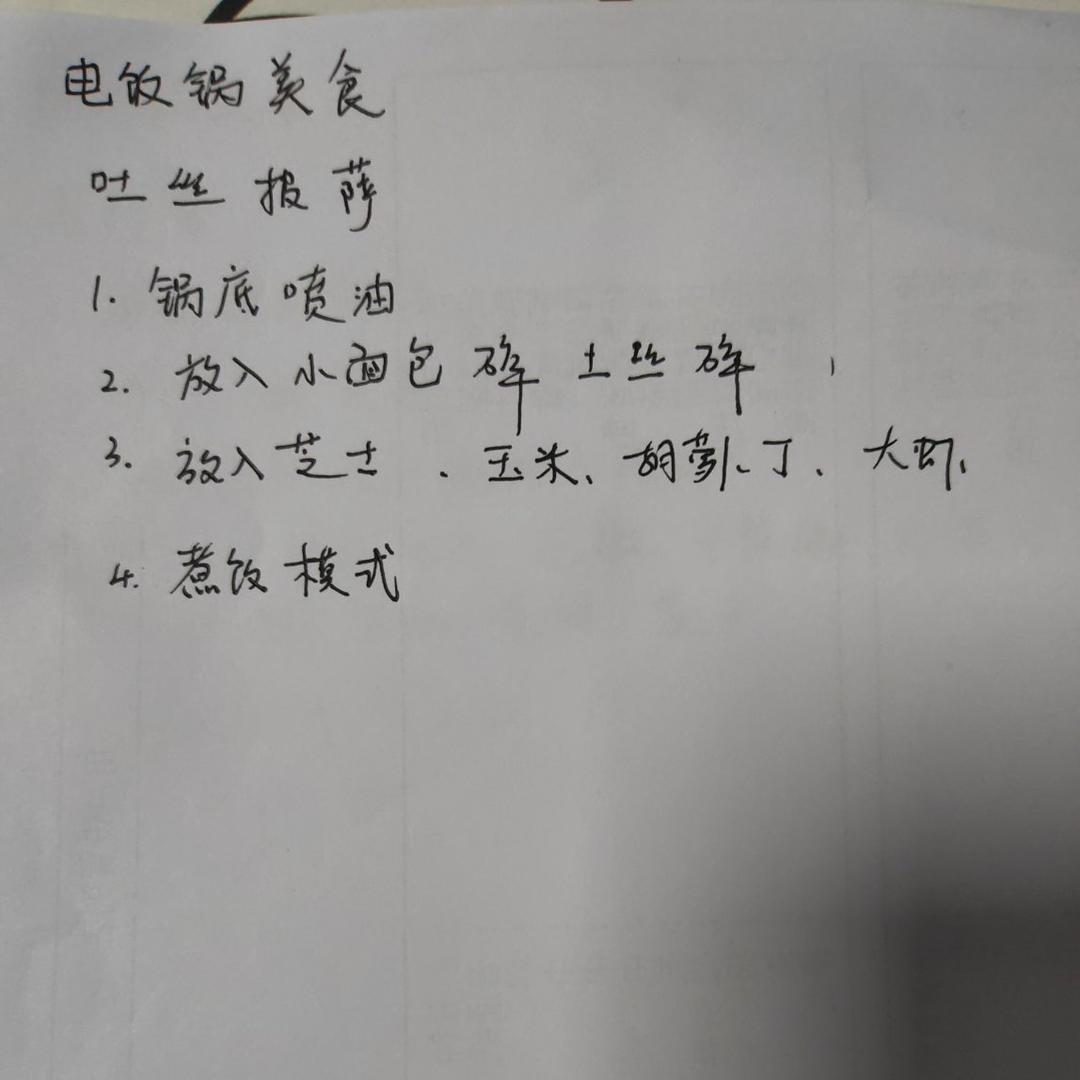 电饭锅美食
吐丝报萨
1. 锅底喷油
2. 放入小面包碎 土丝碎,
3. 放入芝士、玉米、胡萝卜、丁、大虾、
4. 煮饭模式